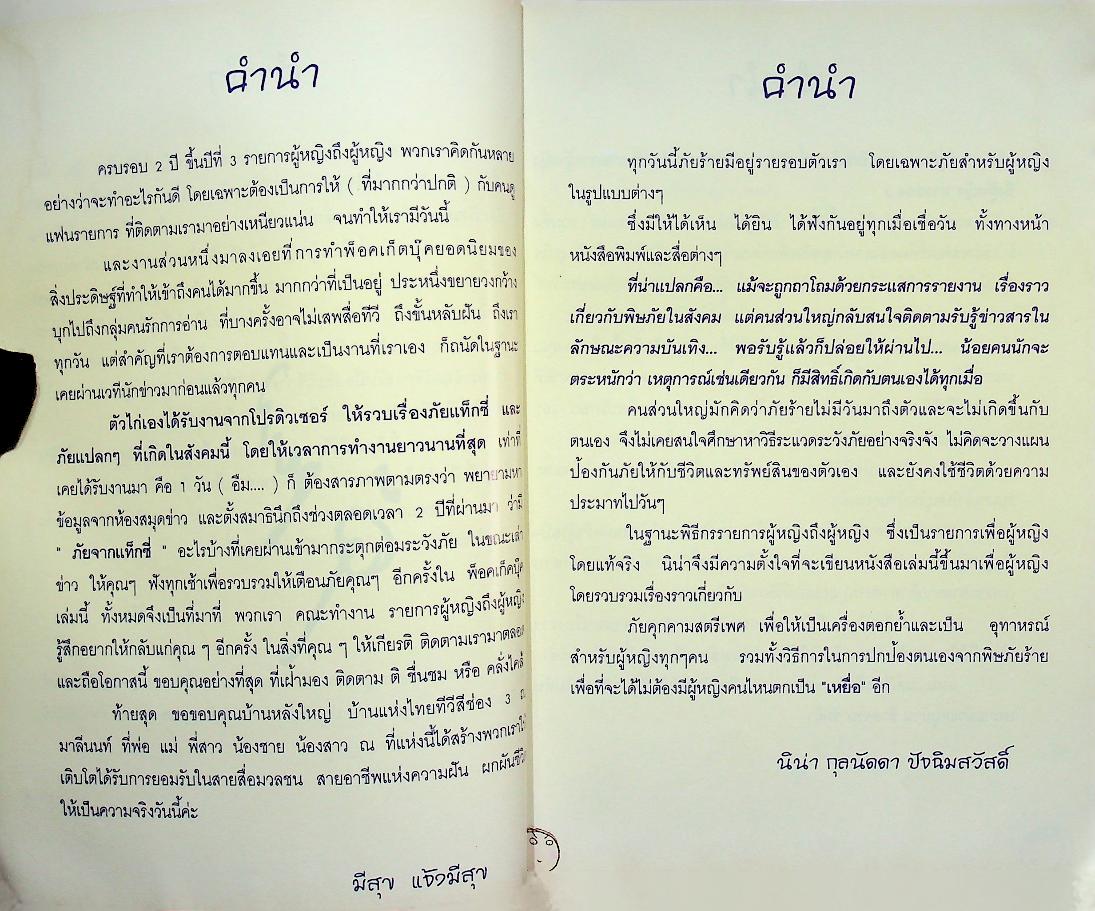 คำนำ
ครบรอบ 2 ปี ขึ้นปีที่ 3 รายการผู้หญิงถึงผู้หญิง พวกเราคิดกันหลาย
อย่างว่าจะทำอะไรกันดี โดยเฉพาะต้องเป็นการให้ ( ที่มากกว่าปกติ ) กับคนดู
แฟนรายการ ที่ติดตามเรามาอย่างเหนียวแน่น จนทำให้เรามีวันนี้
และงานส่วนหนึ่งมาลงเอยที่การทำพ็อคเก็ตบุ๊คยอดนิยมของ
สิ่งประดิษฐ์ที่ทำให้เข้าถึงคนได้มากขึ้น มากกว่าที่เป็นอยู่ ประหนึ่งขยายวงกว้าง
บุกไปถึงกลุ่มคนรักการอ่าน ที่บางครั้งอาจไม่เสพสื่อทีวี ถึงขั้นหลับฝัน ถึงเรา
ทุกวัน แต่สำคัญที่เราต้องการตอบแทนและเป็นงานที่เราเอง ก็ถนัดในฐานะ
เคยผ่านเวทีนักข่าวมาก่อนแล้วทุกคน
ตัวไก่เองได้รับงานจากโปรดิวเซอร์ ให้รวบเรื่องภัยแท็กซี่ และ
ภัยแปลกๆ ที่เกิดในสังคมนี้ โดยให้เวลาการทำงานยาวนานที่สุด เท่าที่
เคยได้รับงานมา คือ 1 วัน ( อืม.... ) ก็ ต้องสารภาพตามตรงว่า พยายามหา
ข้อมูลจากห้องสมุดข่าว และตั้งสมาธินึกถึงช่วงตลอดเวลา 2 ปีที่ผ่านมา ว่ามี
" ภัยจากแท็กซี่ " อะไรบ้างที่เคยผ่านเข้ามากระตุกต่อมระวังภัย ในขณะเล่า
ข่าว ให้คุณๆ ฟังทุกเช้าเพื่อรวบรวมให้เตือนภัยคุณๆ อีกครั้งใน พ็อคเก็คบุ๊ค
เล่มนี้ ทั้งหมดจึงเป็นที่มาที่ พวกเรา คณะทำงาน รายการผู้หญิงถึงผู้หญิง
รู้สึกอยากให้กลับแก่คุณ ๆ อีกครั้ง ในสิ่งที่คุณ ๆ ให้เกียรติ ติดตามเรามาตลอด
และถือโอกาสนี้ ขอบคุณอย่างที่สุด ที่เฝ้ามอง ติดตาม ติ ชื่นชม หรือ คลั่งไคล้
ท้ายสุด ขอขอบคุณบ้านหลังใหญ่ บ้านแห่งไทยทีวีสีช่อง 3 ณ
มาลีนนท์ ที่พ่อ แม่ พี่สาว น้องชาย น้องสาว ณ ที่แห่งนี้ได้สร้างพวกเราให้
เติบโตได้รับการยอมรับในสายสื่อมวลชน สายอาชีพแห่งความฝัน ผกผันชีวิต
ให้เป็นความจริงวันนี้ค่ะ
มีสุข แจ้งมีสุข
คำนำ
ทุกวันนี้ภัยร้ายมีอยู่รายรอบตัวเรา โดยเฉพาะภัยสำหรับผู้หญิง
ในรูปแบบต่างๆ
ซึ่งมีให้ได้เห็น ได้ยิน ได้ฟังกันอยู่ทุกเมื่อเชื่อวัน ทั้งทางหน้า
หนังสือพิมพ์และสื่อต่างๆ
ที่น่าแปลกคือ... แม้จะถูกถาโถมด้วยกระแสการรายงาน เรื่องราว
เกี่ยวกับพิษภัยในสังคม แต่คนส่วนใหญ่กลับสนใจติดตามรับรู้ข่าวสารใน
ลักษณะความบันเทิง... พอรับรู้แล้วก็ปล่อยให้ผ่านไป... น้อยคนนักจะ
ตระหนักว่า เหตุการณ์เช่นเดียวกัน ก็มีสิทธิ์เกิดกับตนเองได้ทุกเมื่อ
คนส่วนใหญ่มักคิดว่าภัยร้ายไม่มีวันมาถึงตัวและจะไม่เกิดขึ้นกับ
ตนเอง จึงไม่เคยสนใจศึกษาหาวิธีระแวดระวังภัยอย่างจริงจัง ไม่คิดจะวางแผน
ป้องกันภัยให้กับชีวิตและทรัพย์สินของตัวเอง และยังคงใช้ชีวิตด้วยความ
ประมาทไปวันๆ
ในฐานะพิธีกรรายการผู้หญิงถึงผู้หญิง ซึ่งเป็นรายการเพื่อผู้หญิง
โดยแท้จริง นิน่าจึงมีความตั้งใจที่จะเขียนหนังสือเล่มนี้ขึ้นมาเพื่อผู้หญิง
โดยรวบรวมเรื่องราวเกี่ยวกับ
ภัยคุกคามสตรีเพศ เพื่อให้เป็นเครื่องตอกย้ำและเป็น อุทาหรณ์
สำหรับผู้หญิงทุกๆคน รวมทั้งวิธีการในการปกป้องตนเองจากพิษภัยร้าย
เพื่อที่จะได้ไม่ต้องมีผู้หญิงคนไหนตกเป็น "เหยื่อ" อีก
นิน่า กุลนัดดา ปัจฉิมสวัสดิ์